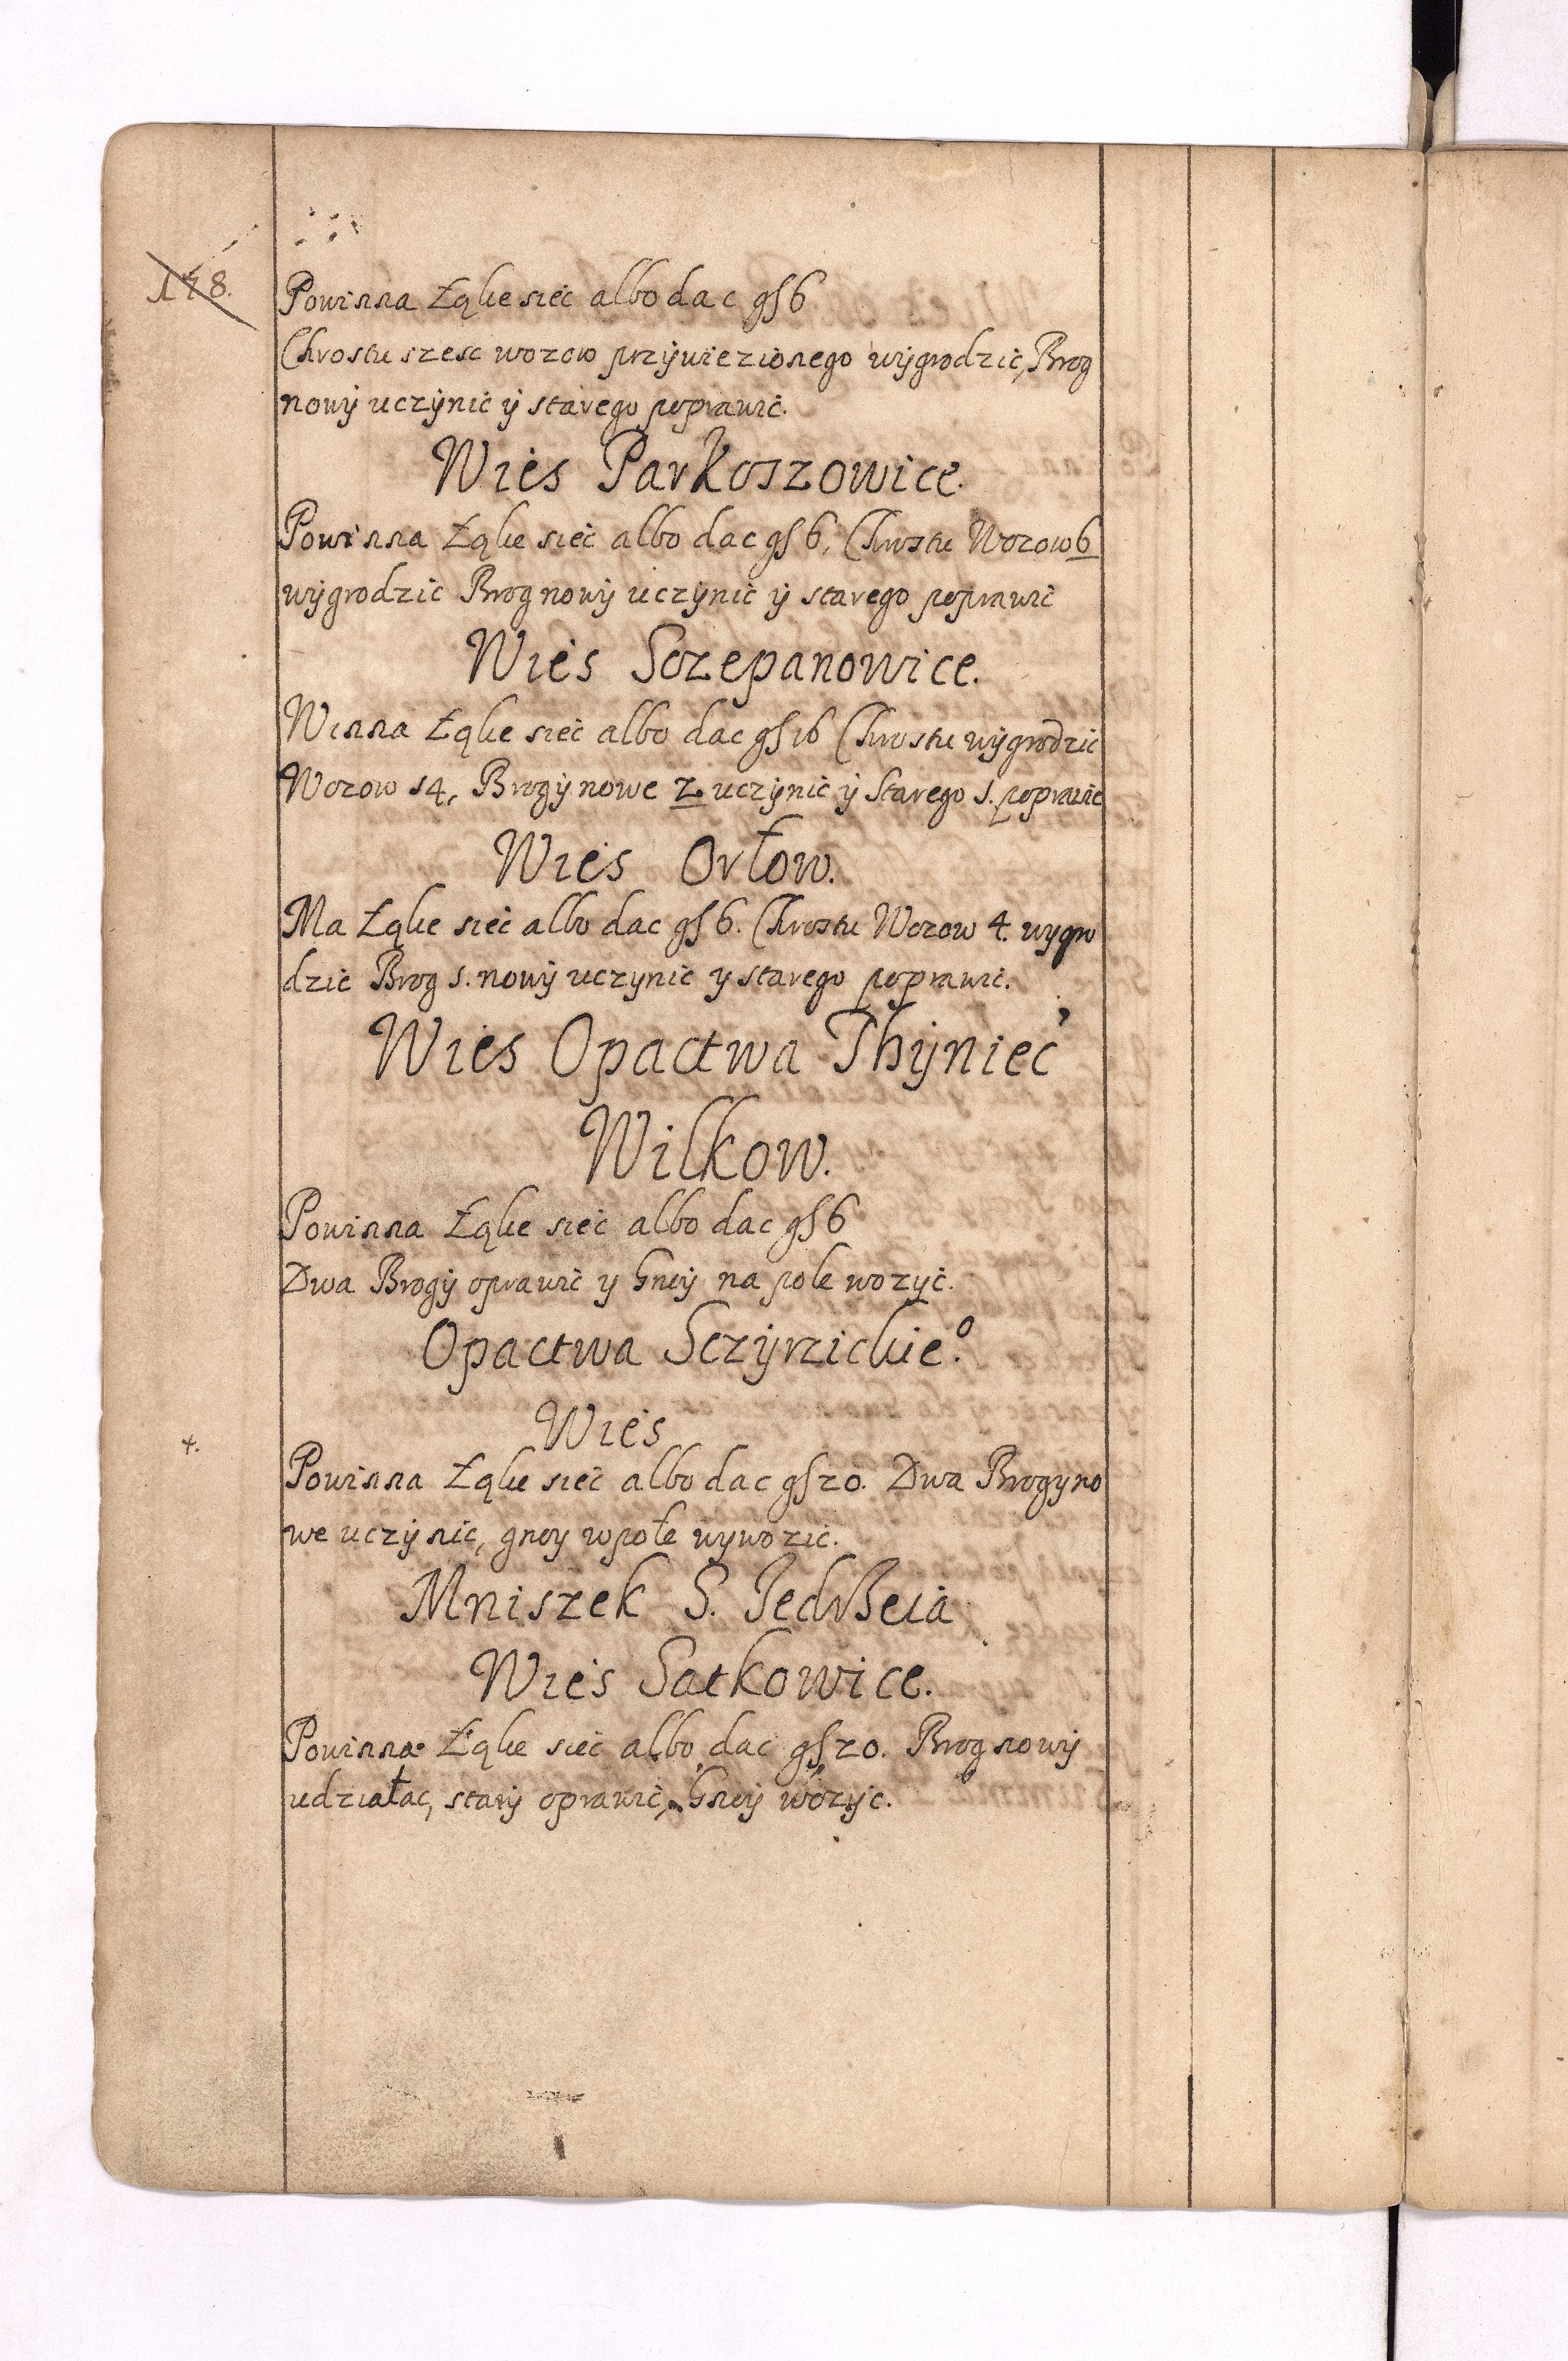 148.
Powinna Łąkę sieć albo dac gſ 6
Chrostu szesc wozow przywiezionego wygrodzić, Brog
nowy uczynić y starego poprawić.
Wies Parkoszowice.
Powinna Łąkę sieć albo dac gſ 6, Chrostu Wozow 6
wygrodzic Brog nowy uczynić y starego poprawić
Wies Sczepanowice.
Winna Łąkę sieć albo dac gſ 16 Chrostu wygrodzić
Wozow 14, Brogy nowe 2. uczynić y Starego 1. poprawić
Wies Orłow.
Ma Łąkę sieć albo dac gſ 6. Chrostu Wozow 4. wygro
dzić Brog 1. nowy uczynić y starego poprawić.
Wies Opactwa Thyniec
Wilkow.
Powinna Łąkę sieć albo dac gſ 6
Dwa Brogy oprawić y Gnoy na pole wozyć.
Opactwa Sczyrzickieº.
Wies
4.
Powinna Łąkę sieć albo dac gſ 20. Dwa Brogy no
we uczynic, gnoy w pole wywozić.
Mniszek S.
Wies Satkowice.
Powinna Łąkę sieć albo dac gſ 20. Brog nowy
udziałac, stary oprawić, Gnoy wozyc.